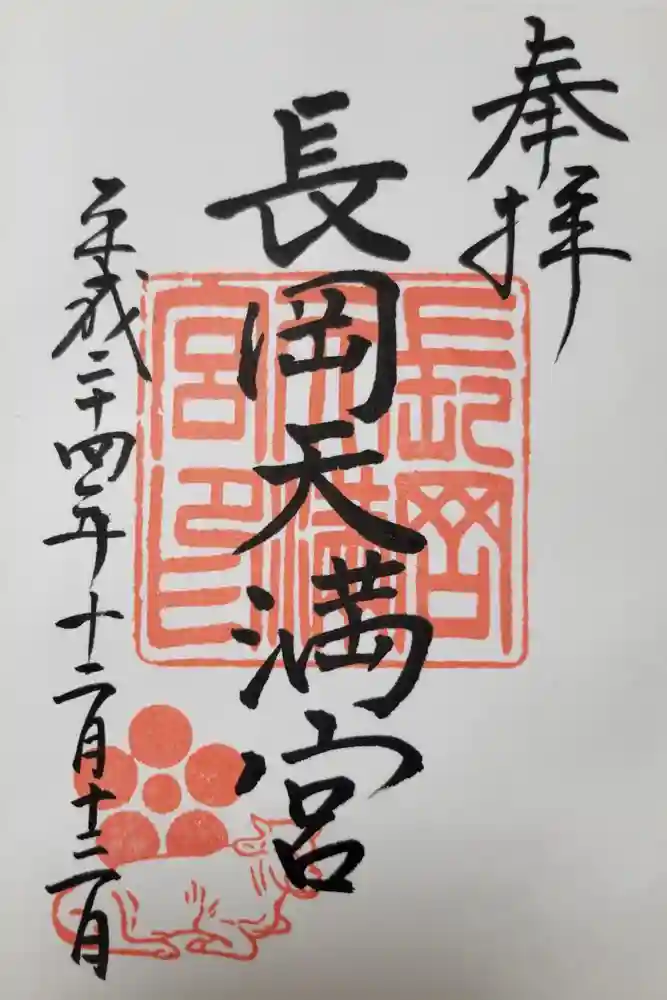 奉拝
長岡天満宮
長岡天満宮印
平成二十四年十二月十二月